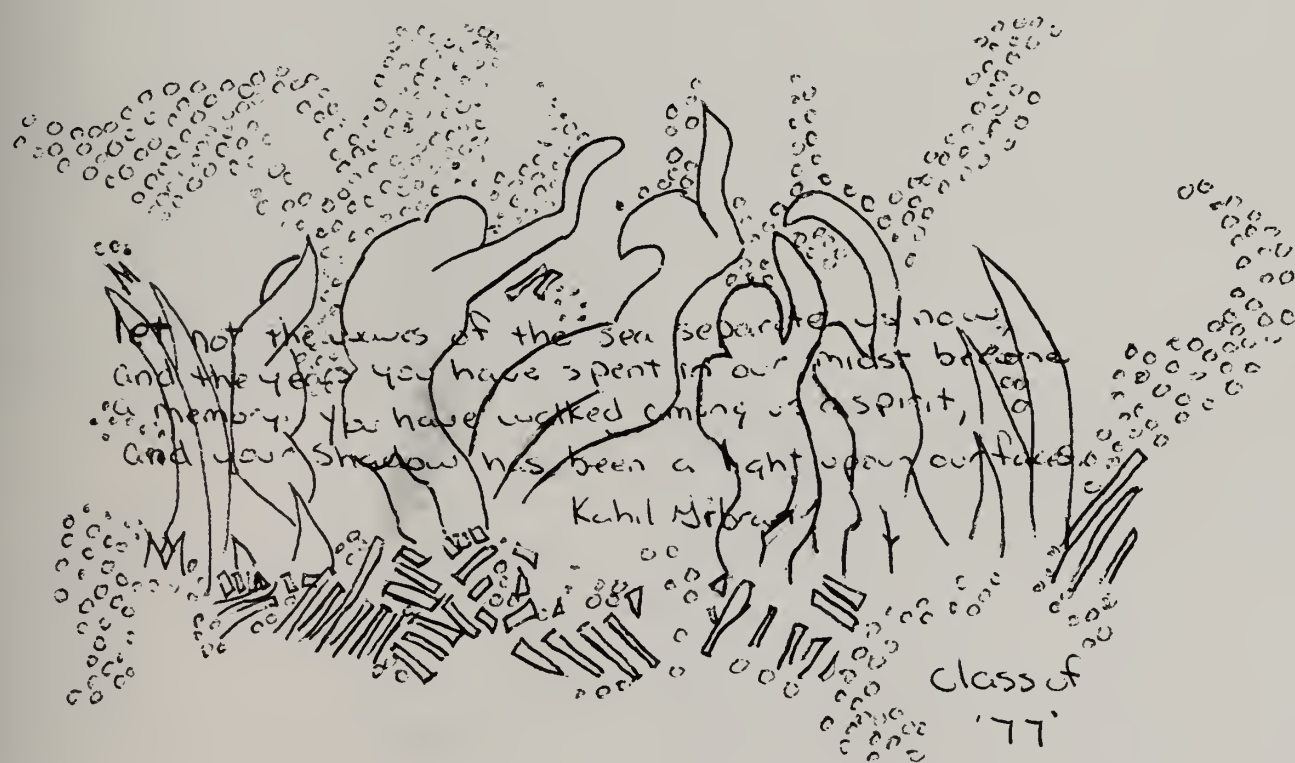 let not the waves of the sea separate us now,
and the years you have spent in our midst become
a memory. you have walked among us a spirit,
and your shadow has been a light upon our faces.
Kahil Gibran
class of
'77'